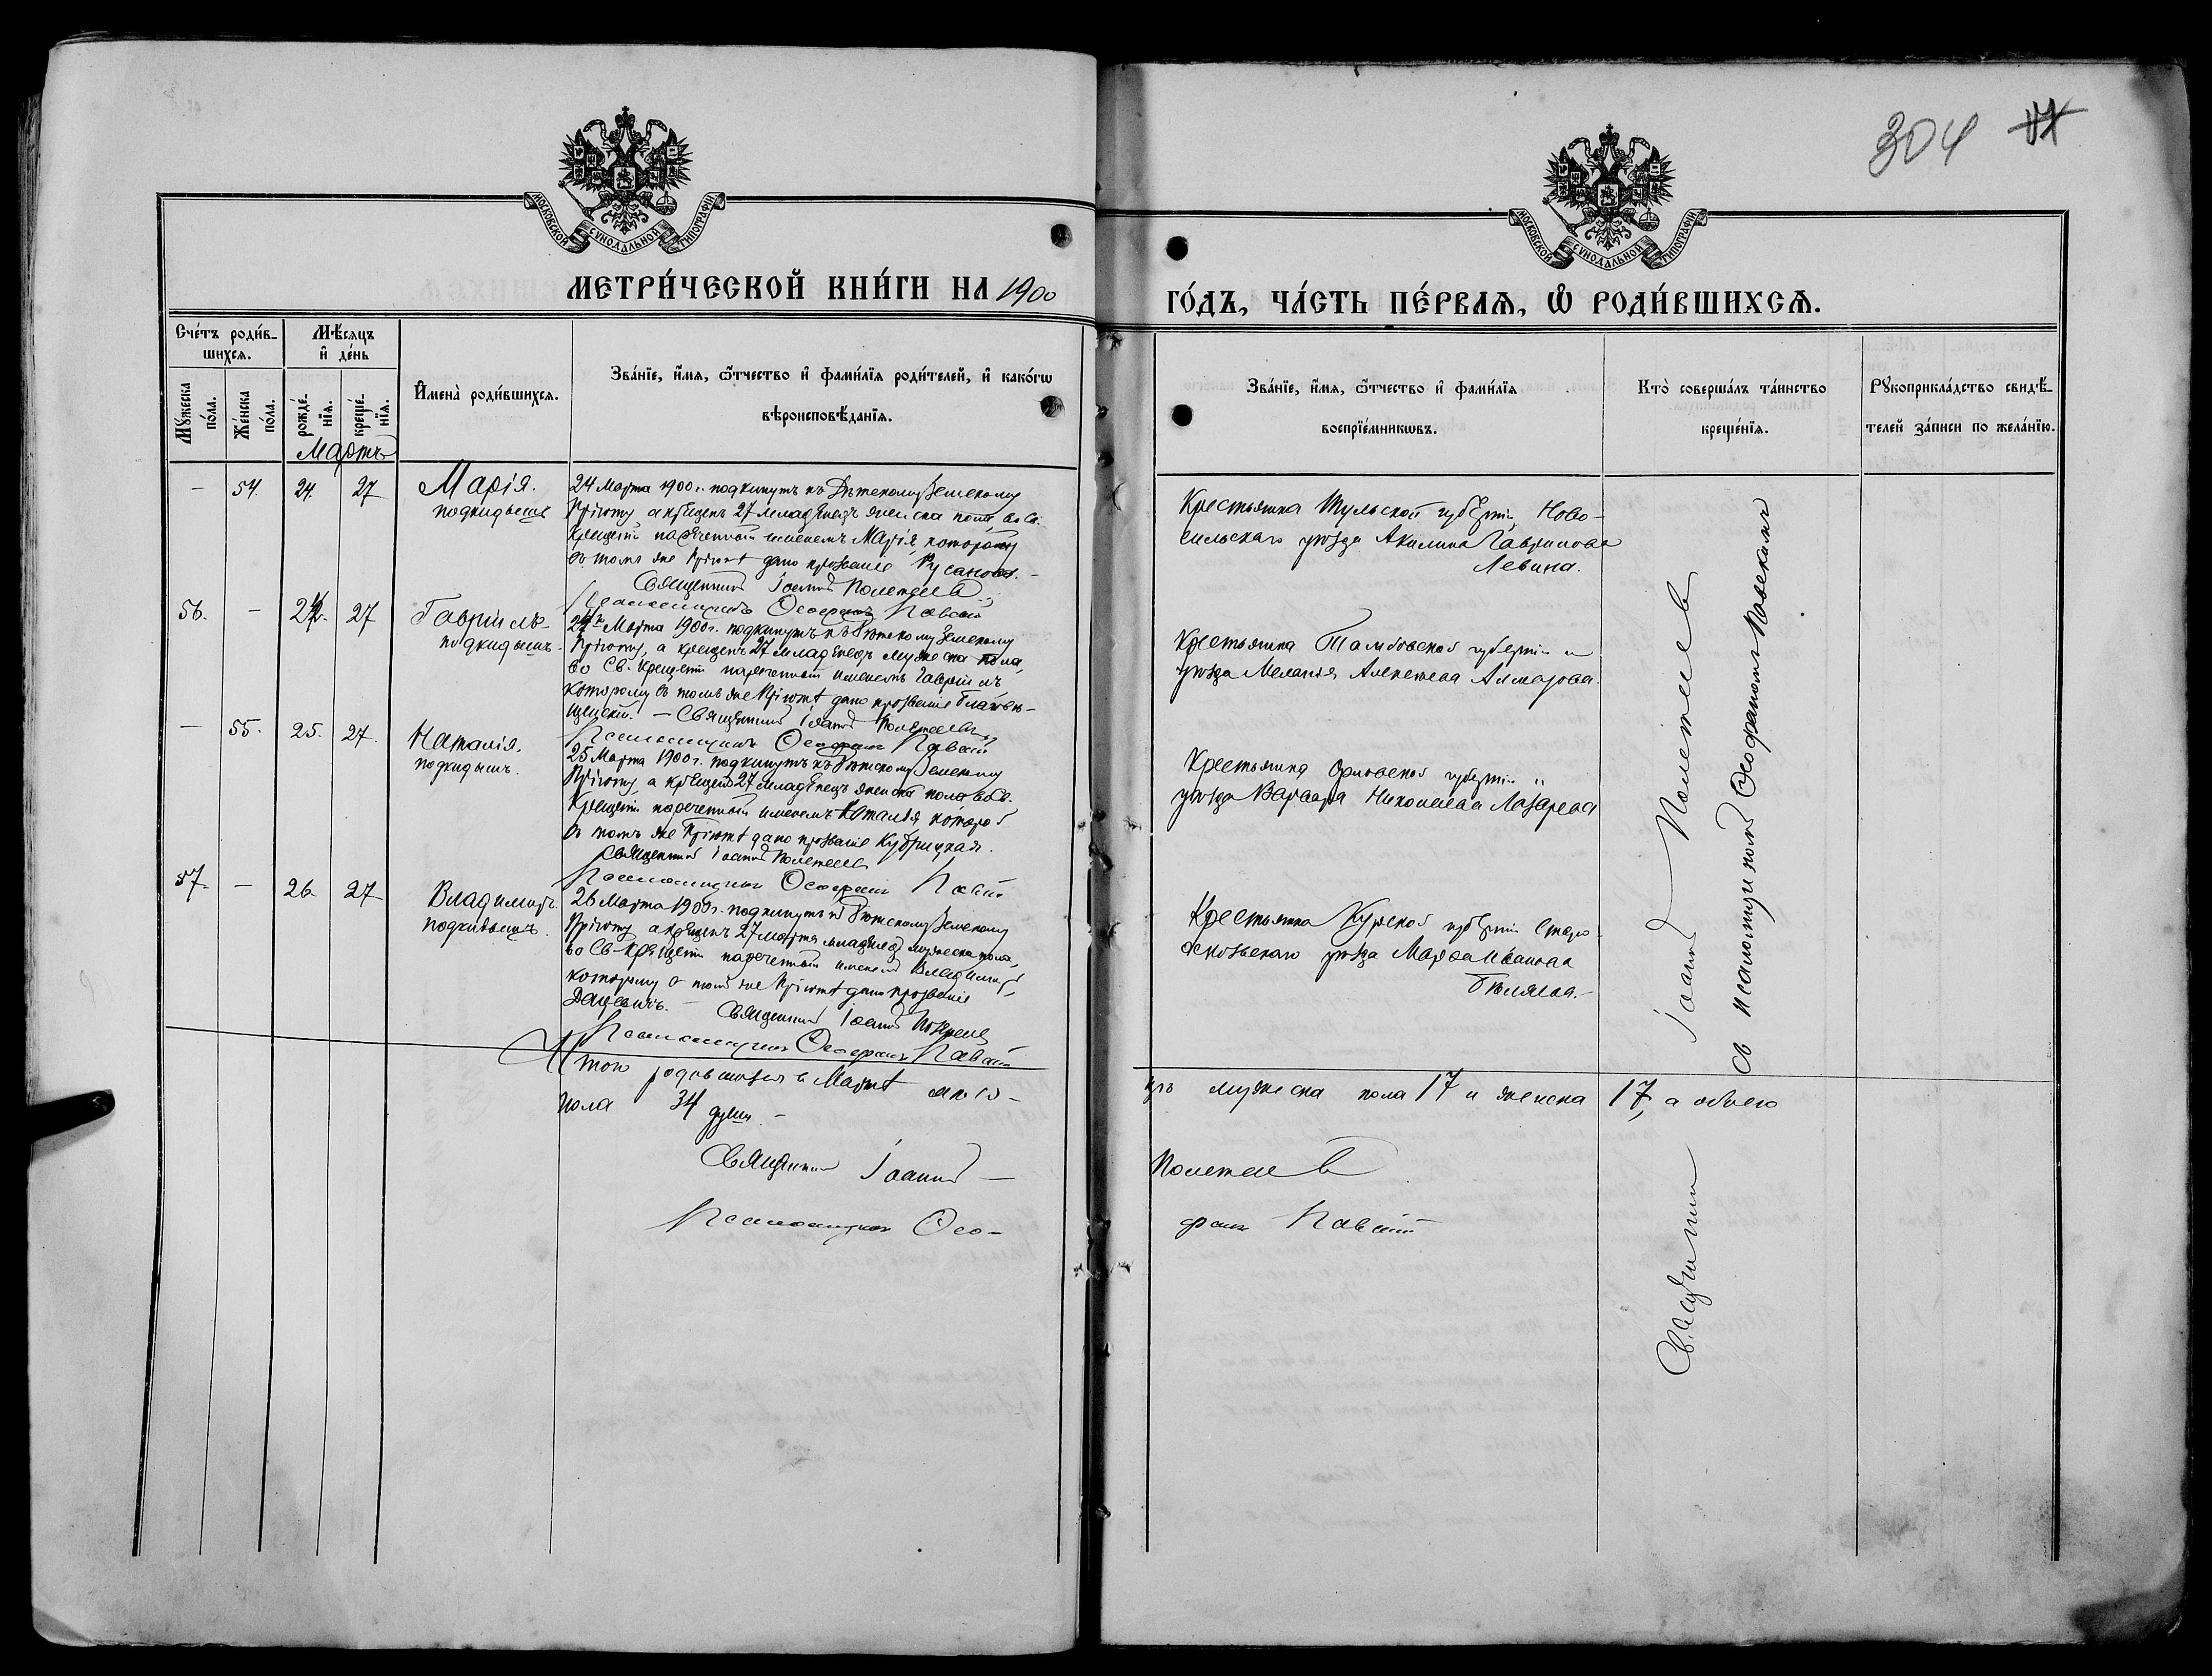 304
МОСКОВСКОЙ СУНОДАЛЬНОЙ ТИПОГРАФІИ
МОСКОВСКОЙ СУНОДАЛЬНОЙ ТИПОГРАФІИ
МЕТРИ́ЧЕСКОЙ КНИ́ГИ НА 1900
ГО́ДЪ, ЧА́СТЬ ПЕ́РВАѦ, Ѡ РОДИ́ВШИХСѦ.
Сче́тъ роди́в-
шихсѧ.
Мѣ́сяцъ
и҆ де́нь
Мꙋ́жеска
по́ла.
Же́нска
по́ла.
рожде́-
нїѧ.
креще́-
нїѧ.
И҆мена̀ роди́вшихсѧ.
Зва́нїе, и҆́мѧ, ѻ҆́тчество и҆ фами́лїѧ роди́телей, и҆ како́гѡ
вѣроисповѣ́данїѧ.
Зва́нїе, и҆́мѧ, ѻ҆́тчество и҆ фами́лїѧ
воспрїе́мникѡвъ.
Кто̀ соверша́лъ та́инство
креще́нїѧ.
Рꙋкоприкла́дство свидѣ́-
телей за́писи по жела́нїю.
Мартъ
— 54. 24. 27 Марія.
подкидышъ
24 Марта 1900 г. подкинутъ къ Дѣтскому Земскому
Пріюту а крещенъ 27 младенецъ женска пола, во Св.
Крещеніи нареченный именемъ Марія, которой
въ томъ же Пріютѣ дано прозваніе Русанова. —
Священникъ Іоаннъ Полетаевъ
Псаломщикъ Ѳеофанъ
Крестьянка Тульской губерніи, Ново-
сильскаго уѣзда Акилина Гаврилова
Левина.
56. — 24. 27 Гавріилъ
подкидышъ.
24 Марта 1900 г. подкинутъ къ Дѣтскому Земскому
Пріюту, а крещенъ 27 младенецъ мужеска пола,
во Св. Крещеніи нареченный именемъ Гавріилъ
которому въ томъ же Пріютѣ дано прозваніе Благовѣ-
щенскій. — Священникъ Іоаннъ Полетаевъ
Псаломщикъ Ѳеофанъ
Крестьянка Тамбовской губерніи и
уѣзда Меланія Алексѣева Алмазова.
— 55. 25. 27. Наталія.
подкидышъ.
25 Марта 1900 г. подкинутъ къ Дѣтскому Земскому
Пріюту, а крещенъ 27 младенецъ женска пола во Св.
Крещеніи нареченный именемъ Наталія которой
въ томъ же Пріютѣ дано прозваніе
Священникъ Іоаннъ Полетаевъ
Псаломщикъ Ѳеофанъ
Крестьянка Орловской губерніи и
уѣзда Варвара Николаева Лазарева
57. — 26. 27 Владиміръ.
подкидышъ.
26 Марта 1900 г. подкинутъ къ Дѣтскому Земскому
Пріюту а крещенъ 27 Марта младенецъ мужеска пола,
во Св. Крещеніи нареченный именемъ Владиміръ,
которому въ томъ же Пріютѣ дано прозваніе
Священникъ Іоаннъ Полетаевъ
Псаломщикъ Ѳеофанъ
Крестьянка Курской губерніи Старо-
оскольскаго уѣзда Марѳа Иванова
Бѣляева. —
Священникъ Іоаннъ Полетаевъ
съ псаломщикомъ Ѳеофаномъ
Итого родившихся въ Мартѣ мѣся-
цѣ мужеска пола 17 и женска 17, а обоего
пола 34 души. —
Священникъ Іоаннъ — Полетаевъ
Псаломщикъ Ѳео-
фанъ